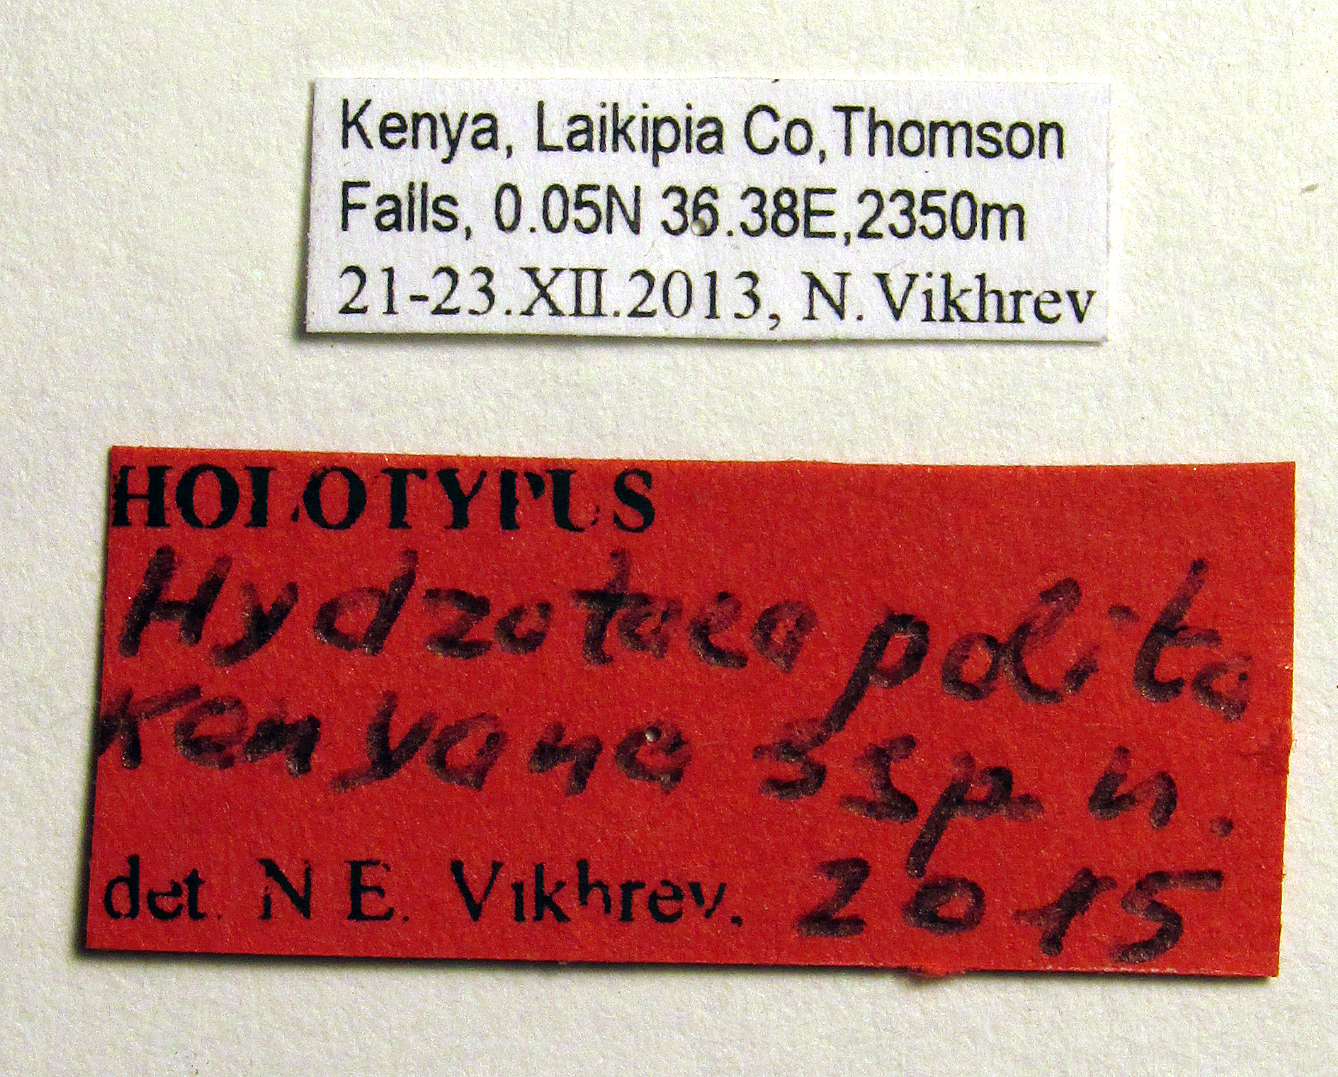 Kenya, Laikipia Co,Thomson
Falls, 0.05N 36.38E,2350m
21-23.XII.2013, N.Vikhrev
HOLOTYPUS
Hydrotaea polita
kenyana ssp n.
det. N E. Vikhrev, 2015